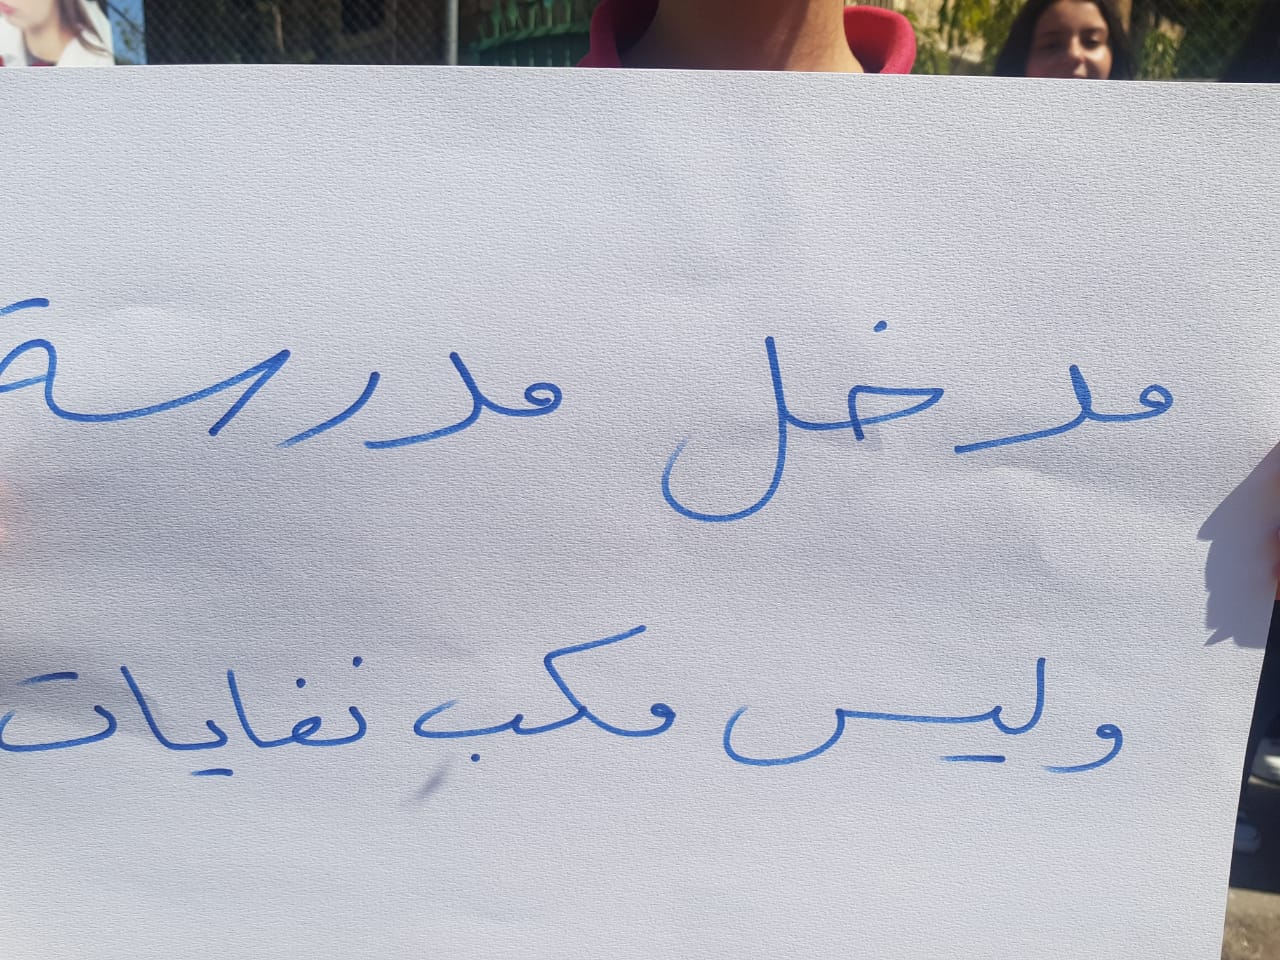 مدخل مدرسة
وليس مكب نفايات